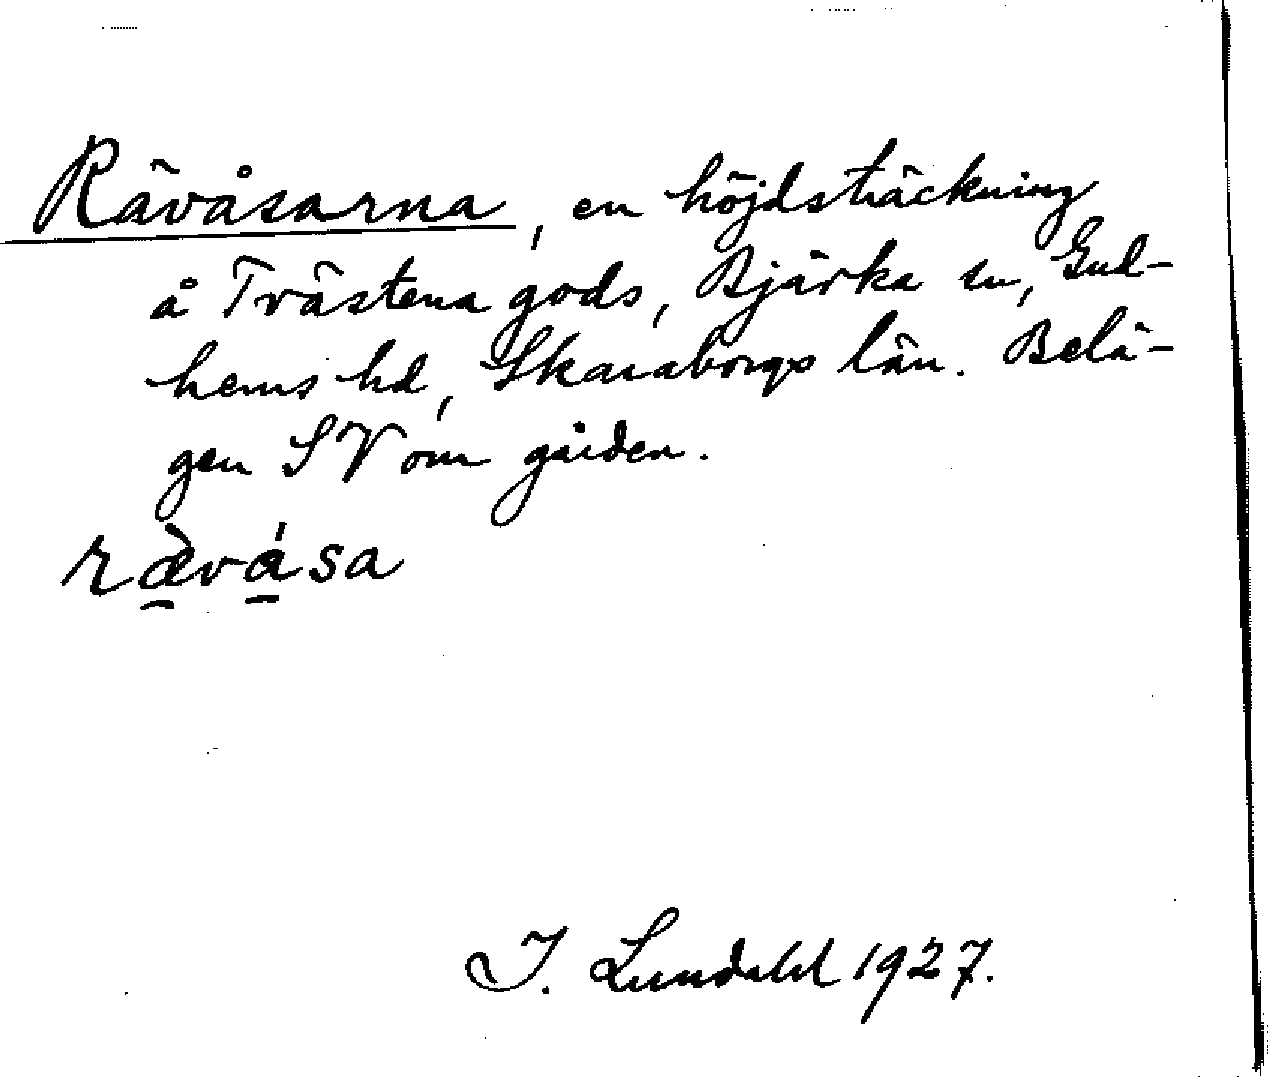 Rävåsarna, en höjdsträckning
å Trästena gods, Bjärka sn, Gud-
hems hd, Skaraborgs län. Belä-
gen SV om gården.
ræ̀vása
I. Lundahl 1927.